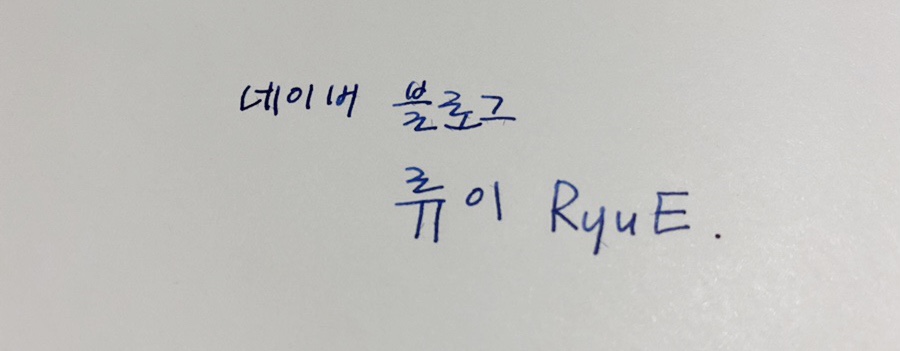 네이버 블로그
류이 RyuE.